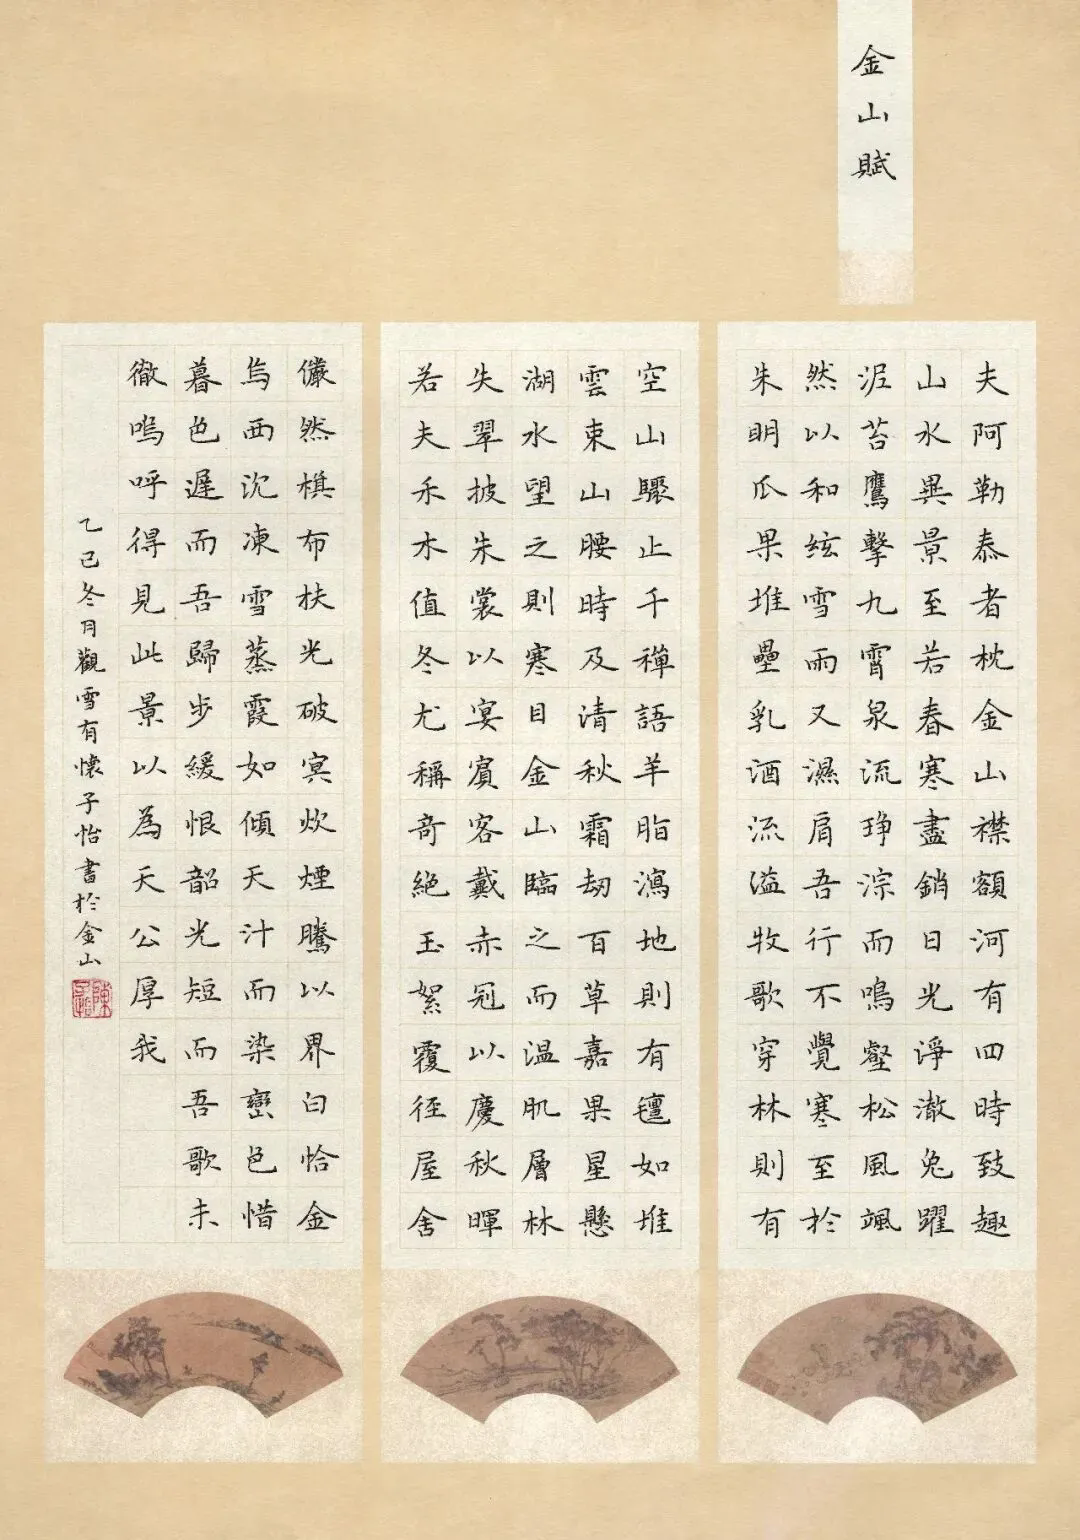 金山賦
夫阿勒泰者枕金山襟額河有四時致趣
山水異景至若春寒盡銷日光淨澈兔躍
泥苔鷹擊九霄泉流琤淙而鳴壑松風颯
然以和絃雪雨又濕肩吾行不覺寒至於
朱明瓜果堆壘乳酒流溢牧歌穿林則有
空山驟止千禪語羊脂瀉地則有氊如堆
雲束山腰時及清秋霜劫百草嘉果星懸
湖水望之則寒目金山臨之而温肌層林
失翠披朱裳以宴賓客戴赤冠以慶秋暉
若夫禾木值冬尤稱奇絕玉絮覆徑屋舍
儼然棋布扶光破冥炊煙騰以界白恰金
烏西沉凍雪蒸霞如傾天汁而染巒色惜
暮色遲而吾歸步緩恨韶光短而吾歌未
徹嗚呼得見此景以為天公厚我
乙巳冬月觀雪有懷子怡書於金山